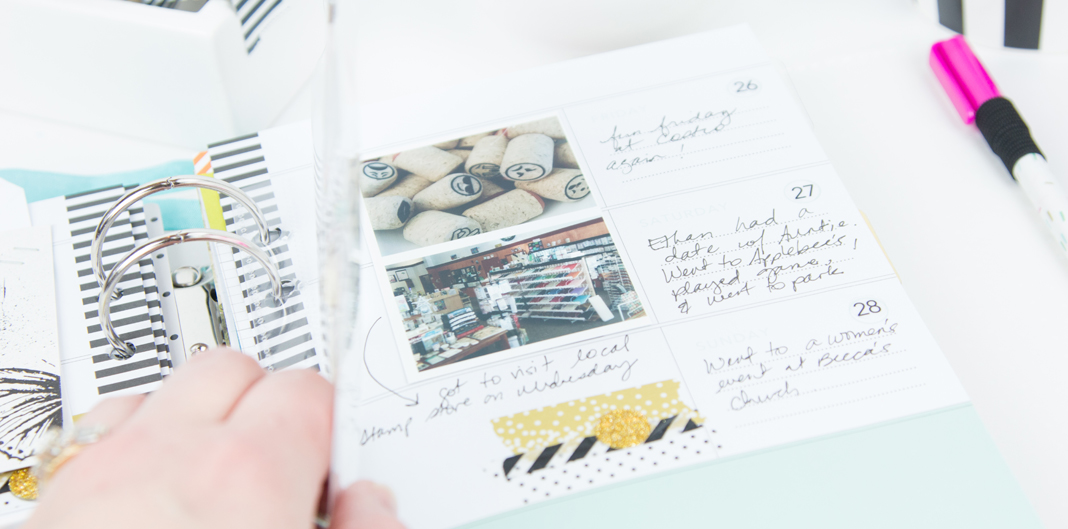 26
fun friday
at Costco
again!
27
Ethan had a
date w/ Auntie.
Went to Applebee's,
played games,
& went to park
28
Went to a women's
event at Becca's
church
got to visit local
stamp store on Wednesday